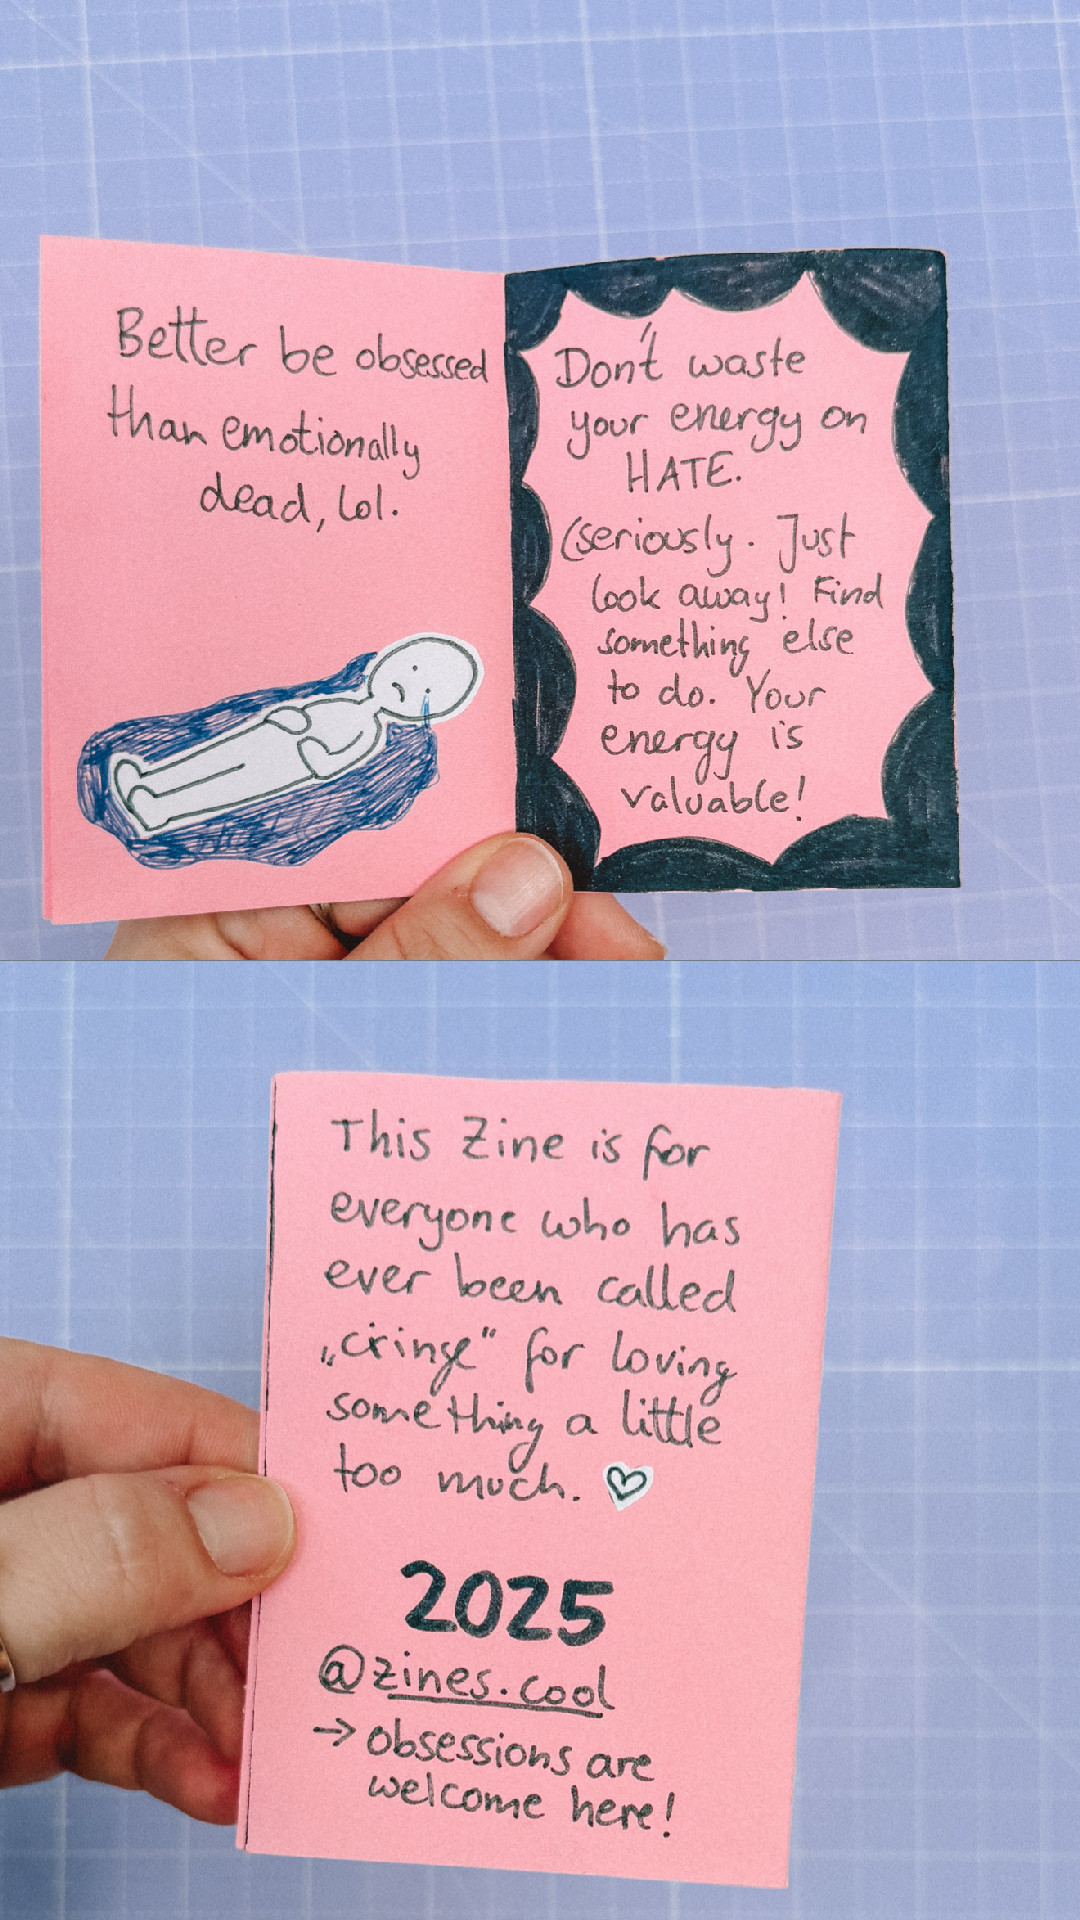 Better be obsessed
than emotionally
dead, lol.
Don't waste
your energy on
HATE.
(seriously. Just
look away! Find
something else
to do. Your
energy is
valuable!
This Zine is for
everyone who has
ever been called
„cringe“ for loving
something a little
too much. ♡
2025
@zines.cool
→ obsessions are
welcome here!